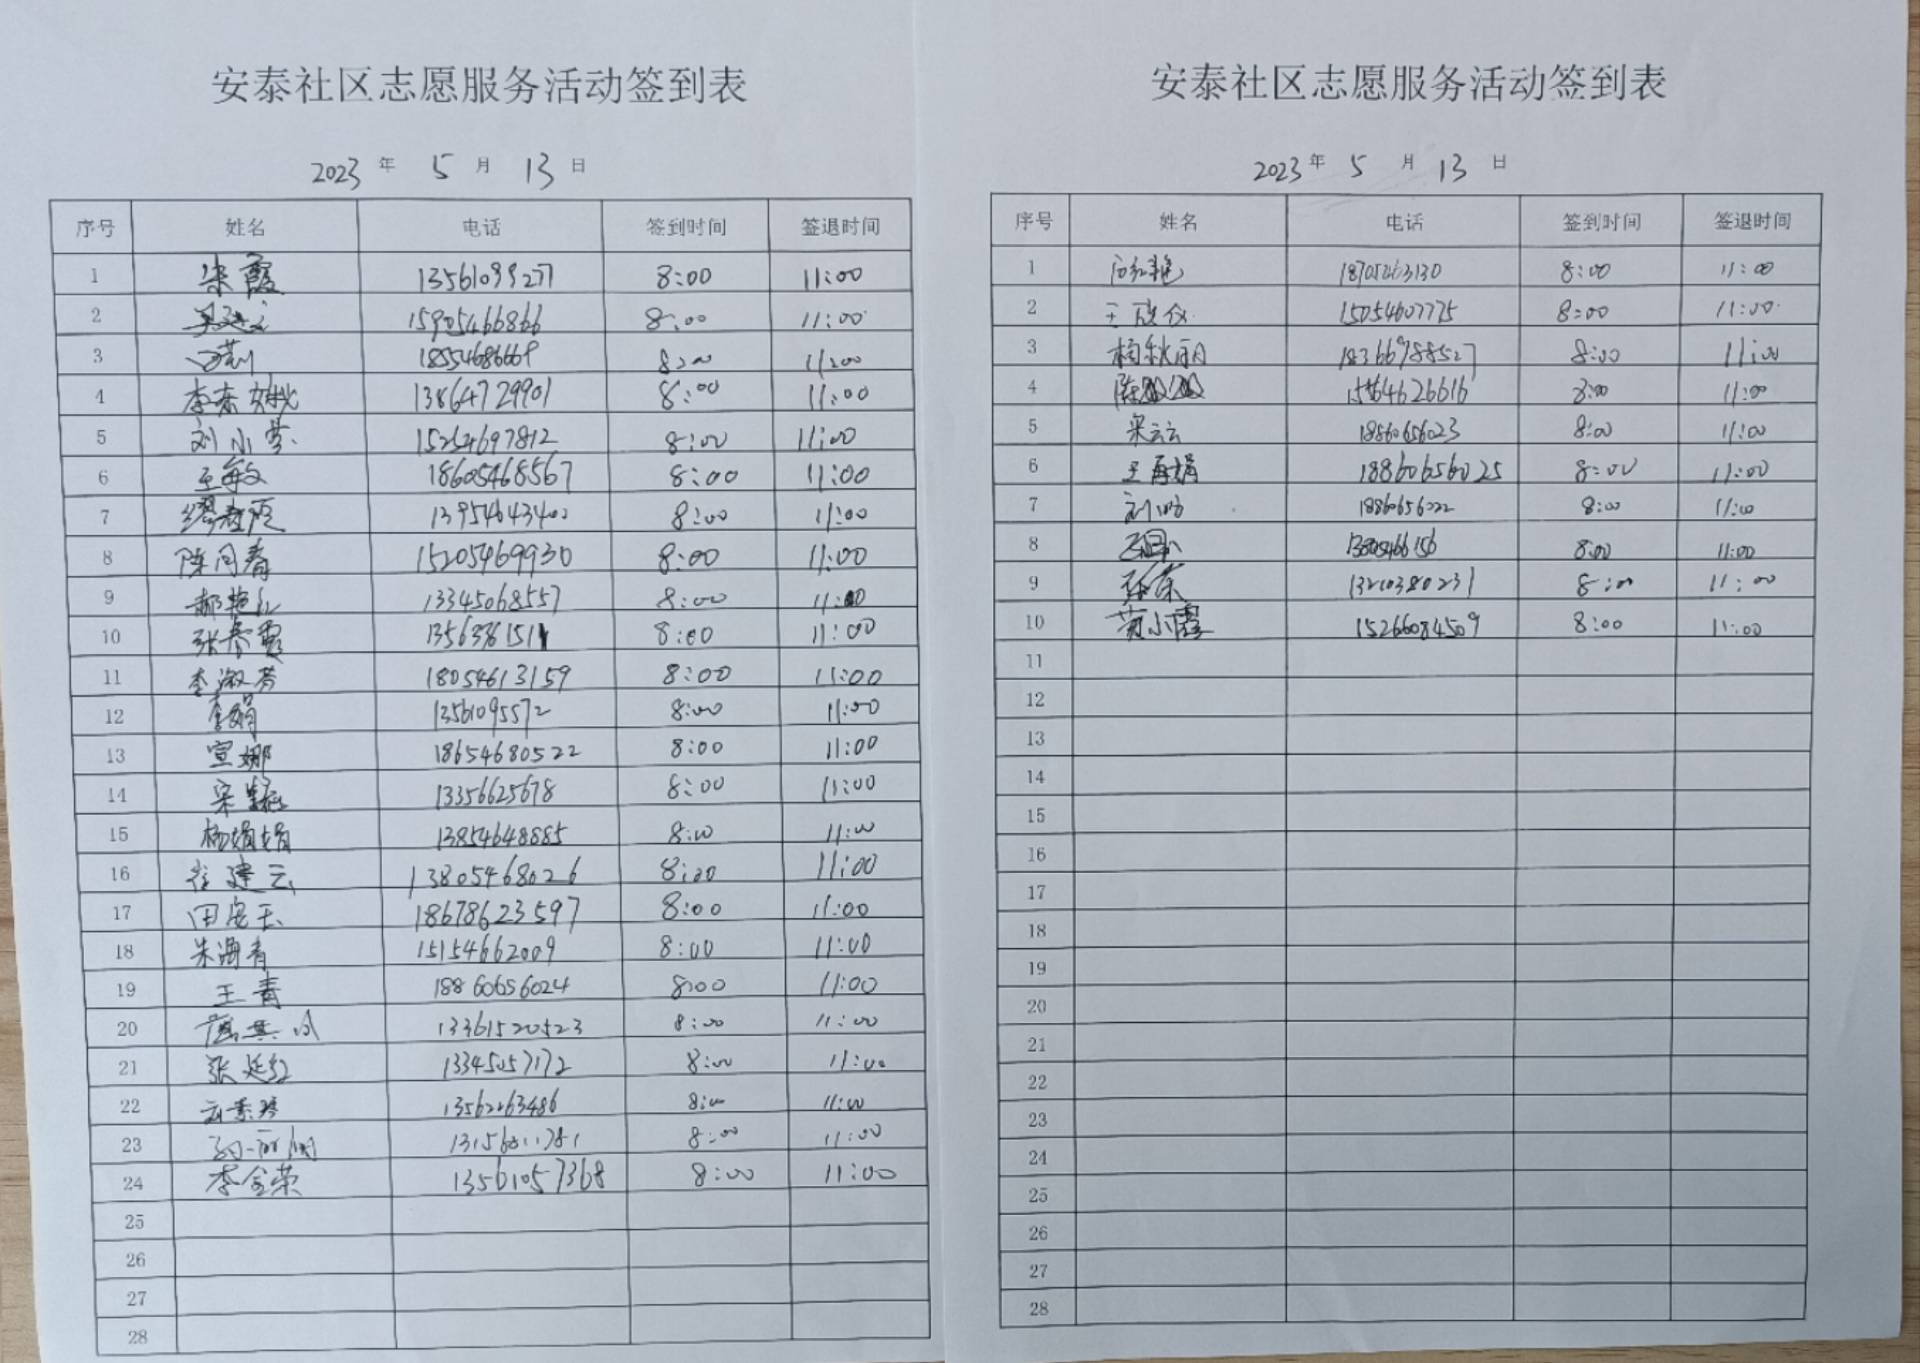 安泰社区志愿服务活动签到表
2023 年 5 月 13 日
序号 姓名 电话 签到时间 签退时间
1 宋霞 13561099277 8:00 11:00
2 15905466866 8:00 11:00
3 18554686669 8:00 11:00
4 13864729901 8:00 11:00
5 刘小芸 15254697812 8:00 11:00
6 王敏 18605468567 8:00 11:00
7 13954643400 8:00 11:00
8 陈同春 15205469930 8:00 11:00
9 郝艳红 13345068557 8:00 11:00
10 张春霞 8:00 11:00
11 李淑芳 18054613159 8:00 11:00
12 李娟 13561095572 8:00 11:00
13 宣娜 18654680522 8:00 11:00
14 宋 13356625678 8:00 11:00
15 杨娟娟 13854648885 8:00 11:00
16 崔建云 13805468026 8:00 11:00
17 田 18678623597 8:00 11:00
18 朱海青 15154662009 8:00 11:00
19 王青 18860656024 8:00 11:00
20 13361520523 8:00 11:00
21 张延红 13345057172 8:00 11:00
22 13562263486 8:00 11:00
23 8:00 11:00
24 李金荣 13561057368 8:00 11:00
25
26
27
28
安泰社区志愿服务活动签到表
2023 年 5 月 13 日
序号 姓名 电话 签到时间 签退时间
1 18705463130 8:00 11:00
2 王 15054607775 8:00 11:00
3 杨秋丽 18366988527 8:00 11:00
4 陈 15864626616 8:00 11:00
5 宋云云 18860656023 8:00 11:00
6 王再娟 18860656025 8:00 11:00
7 刘 18860656022 8:00 11:00
8 13805466156 8:00 11:00
9 张荣 13210380231 8:00 11:00
10 黄小霞 15266084509 8:00 11:00
11
12
13
14
15
16
17
18
19
20
21
22
23
24
25
26
27
28